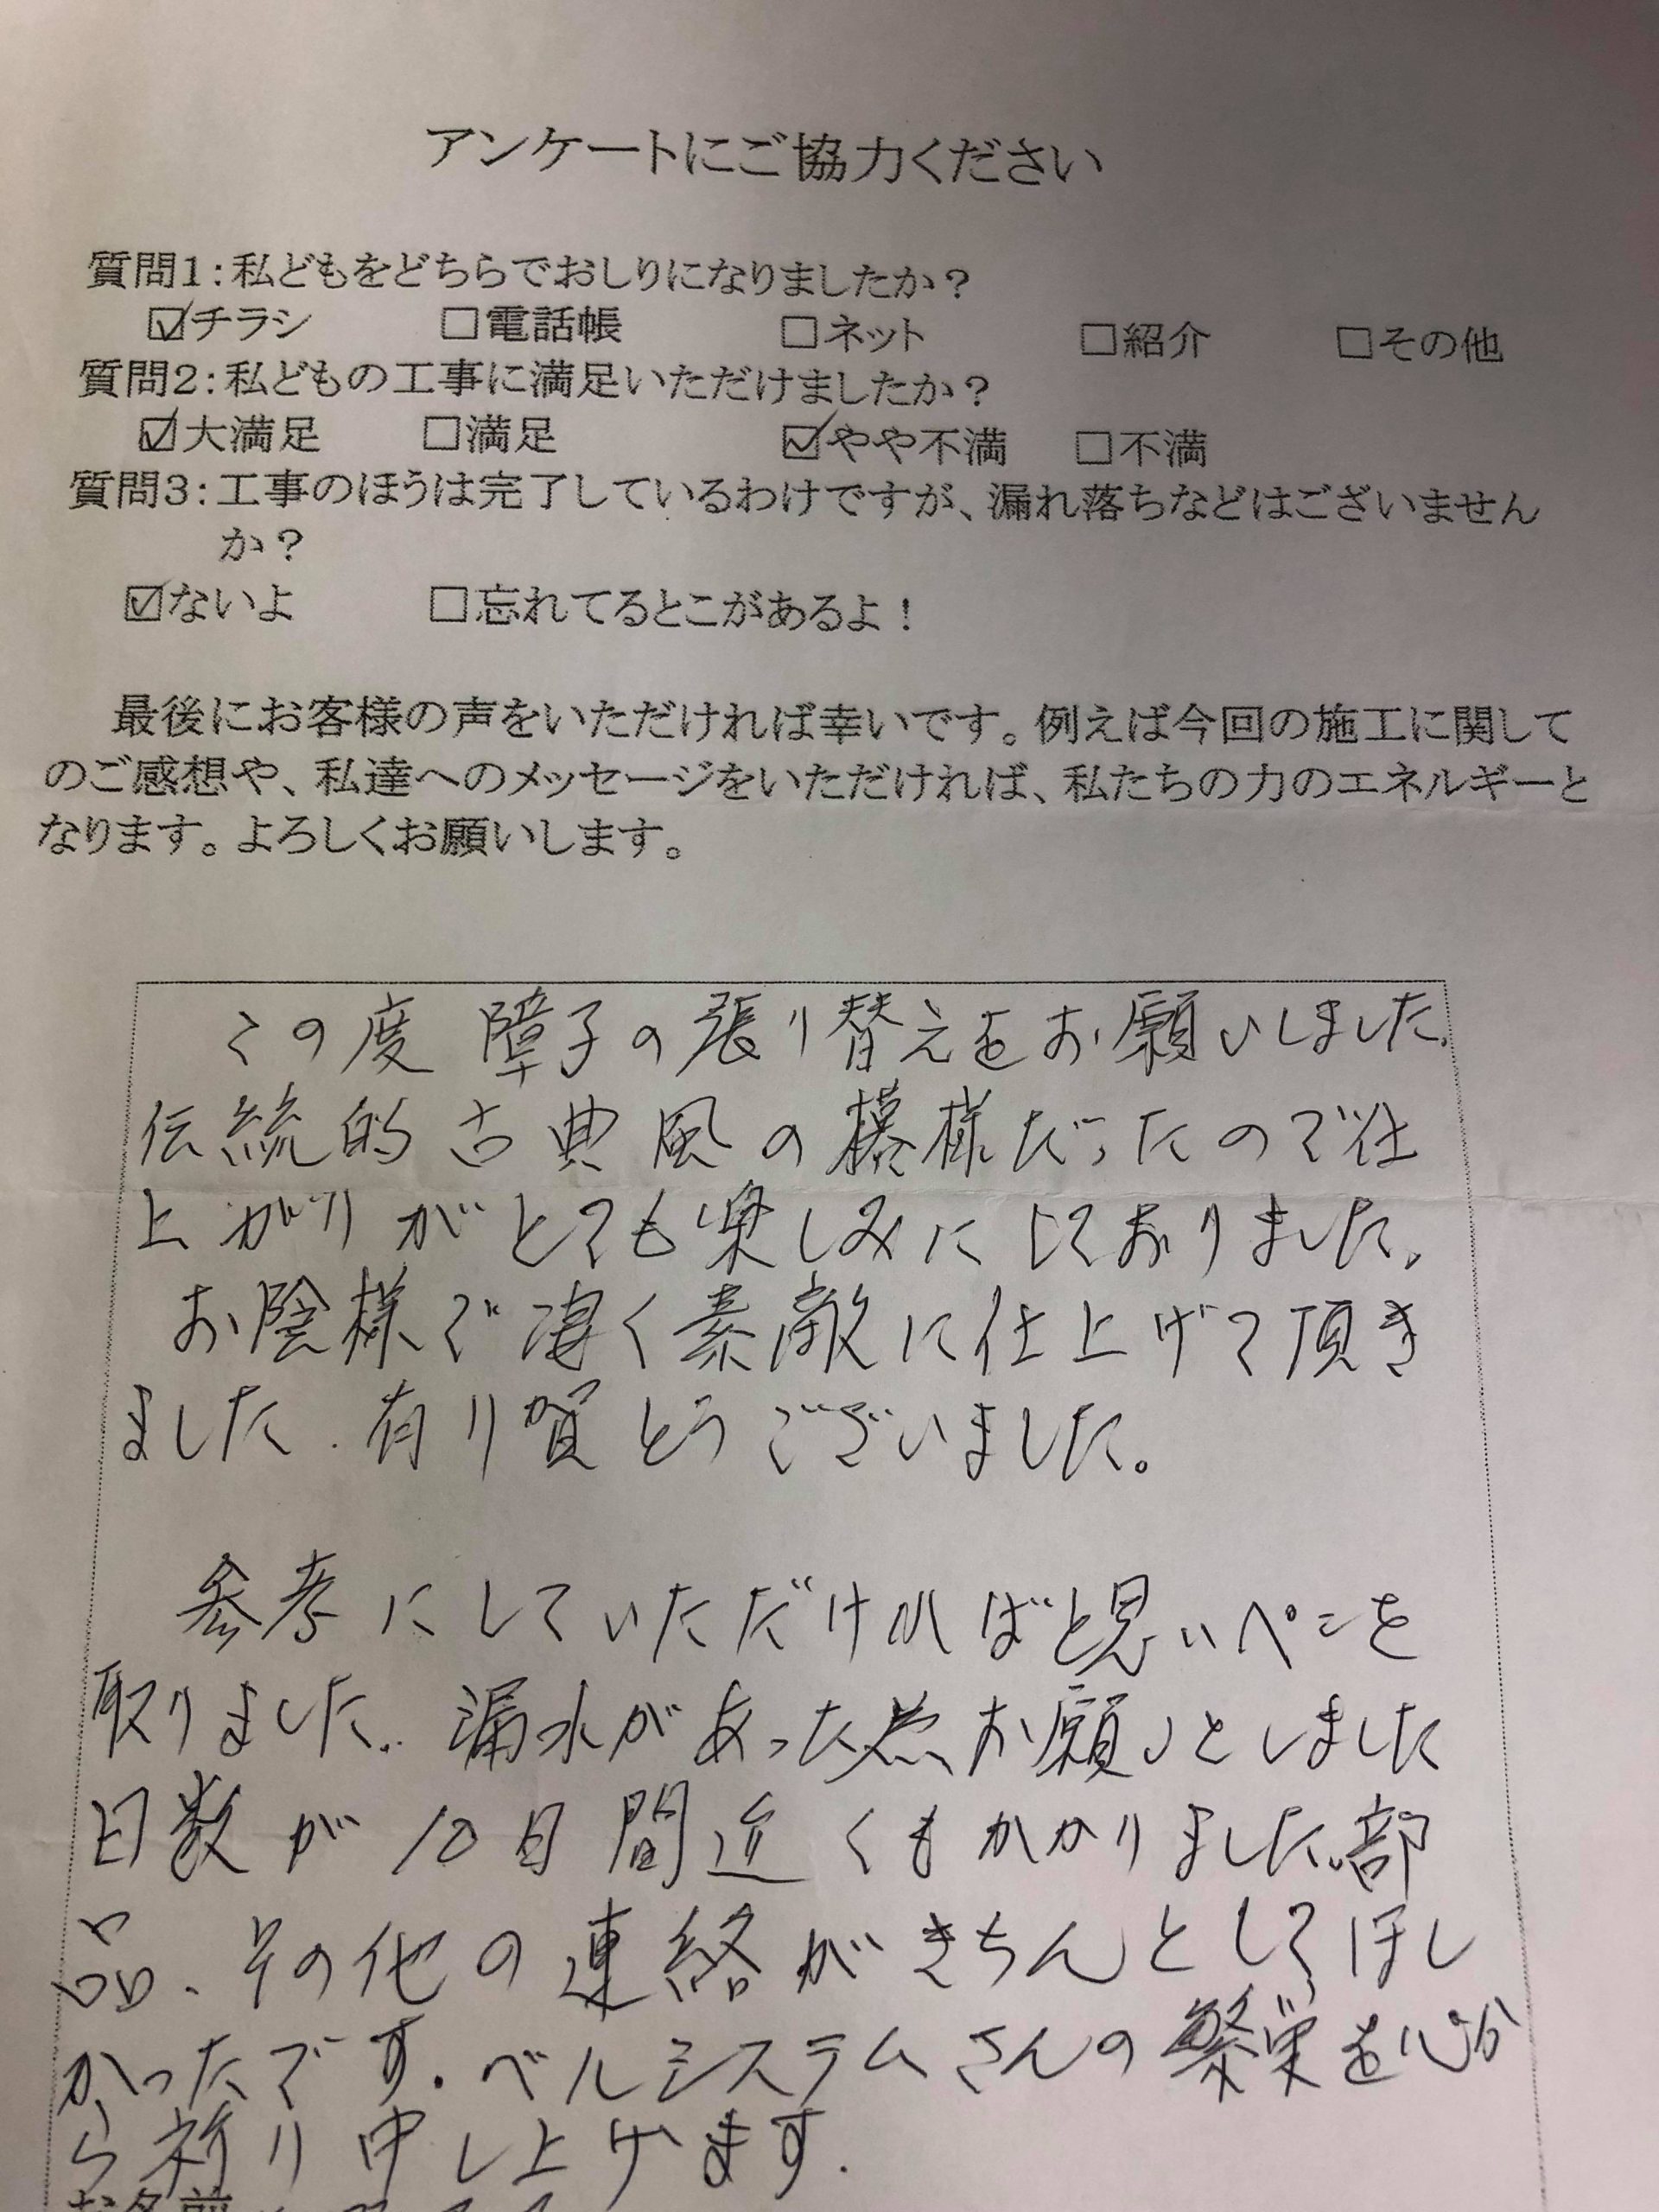 アンケートにご協力ください
質問1:私どもをどちらでおしりになりましたか?
☑チラシ □電話帳 □ネット □紹介 □その他
質問2:私どもの工事に満足いただけましたか?
☑大満足 □満足 ☑やや不満 □不満
質問3:工事のほうは完了しているわけですが、漏れ落ちなどはございません
か?
☑ないよ □忘れてるとこがあるよ!
最後にお客様の声をいただければ幸いです。例えば今回の施工に関して
のご感想や、私達へのメッセージをいただければ、私たちの力のエネルギーと
なります。よろしくお願いします。
この度 障子の張り替えをお願いしました.
伝統的古典風の模様だったので仕
上がりがとても楽しみにしておりました.
お陰様で凄く素敵に仕上げて頂き
ました. 有り賀とうございました。
参考にしていただければと思いペンを
取りました. 漏水があった点お願いとしました
日数が10日間近くもかかりました.部
品、その他の連絡がきちんとしてほし
かったです. ベルシステムさんの繁栄を心か
ら祈り申し上げます.
お名前